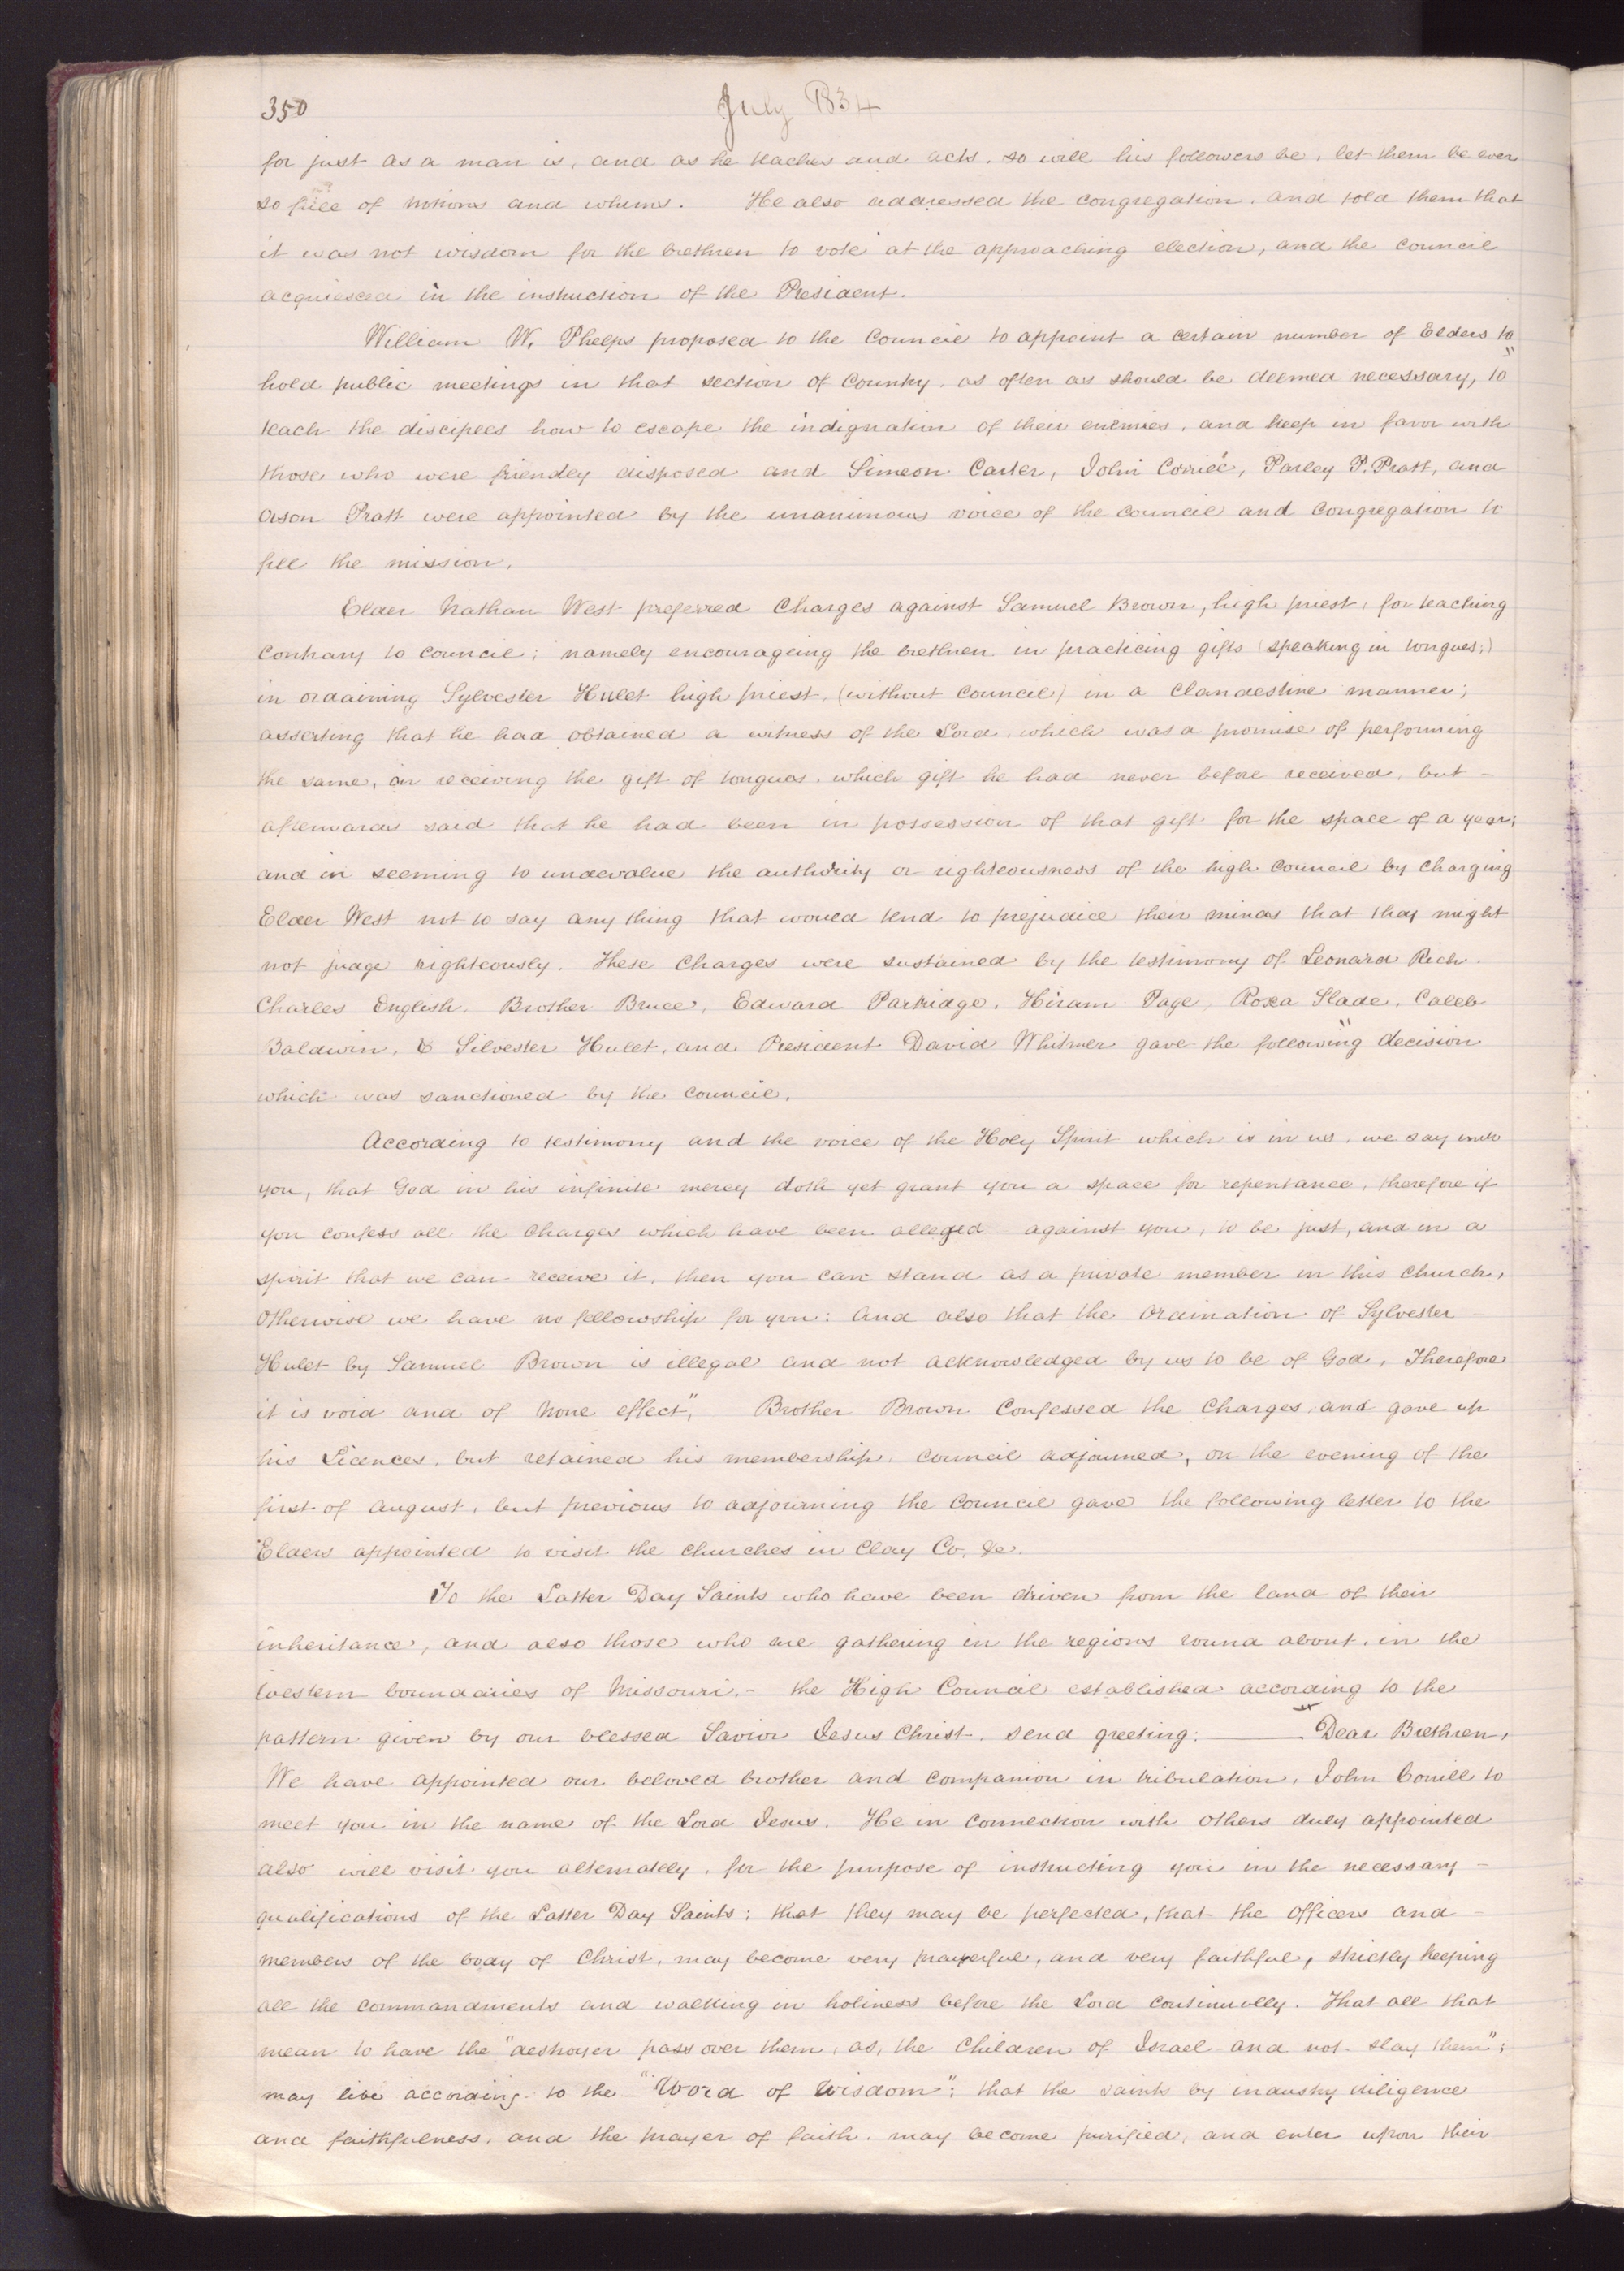 350
July 1834
for just as a man is, and as he teaches and acts, so will his followers be, let them be ever
so full of notions and whims. He also addressed the congregation, and told them that
it was not wisdom for the brethren to vote at the approaching election, and the council
acquiesced in the instruction of the President.
William W. Phelps proposed to the Council to appoint a certain number of Elders to
hold public meetings in that section of Country, as often as should be deemed necessary, to
teach the disciples how to escape the indignation of their enemies, and keep in favor with
those who were friendly disposed and Simeon Carter, John Corrill, Parley P. Pratt, and
Orson Pratt were appointed by the unanimous voice of the council and congregation to
fill the mission.
Elder Nathan West preferred Charges against Samuel Brown, high priest, for teaching
Contrary to council; namely encourageing the brethren in practicing gifts (speaking in tongues;)
in ordaining Sylvester Hulet high priest, (without Council) in a Clandestine manner;
asserting that he had obtained a witness of the Lord, which was a promise of performing
the same, in receiving the gift of tongues, which gift he had never before received, but -
afterwards said that he had been in possession of that gift for the space of a year;
and in seeming to undervalue the authority or righteousness of the high Council by Charging
Elder West not to say any thing that would tend to prejudice their minds that they might
not judge righteously. These Charges were sustained by the testimony of Leonard Rich.
Charles English, Brother Bruce, Edward Partridge, Hiram Page, Roxa Slade, Caleb
Baldwin, & Silvester Hulet, and President David Whitmer gave the following decision
which was sanctioned by the council.
"According to testimony and the voice of the Holy Spirit which is in us, we say unto
you, that God in his infinite mercy doth yet grant you a space for repentance, therefore if
you confess all the Charges which have been alleged against you, to be just, and in a
spirit that we can receive it, then you can stand as a private member in this Church,
Otherwise we have no fellowship for you: And also that the Ordination of Sylvester
Hulet by Samuel Brown is illegal and not acknowledged by us to be of God, Therefore
it is void and of None effect," Brother Brown Confessed the Charges, and gave up
his Licences, but retained his membership. Council adjourned, on the evening of the
first of August, but previous to adjourning the Council gave the following letter to the
Elders appointed to visit the churches in Clay Co, &c.
To the Latter Day Saints who have been driven from the land of their
inheritance, and also those who are gathering in the regions round about, in the
western boundaries of Missouri,- the High Council established according to the
pattern given by our blessed Savior Jesus Christ, send greeting: — Dear Brethren,
We have appointed our beloved brother and Companion in tribulation, John Corrill to
meet you in the name of the Lord Jesus. He in Connection with Others duly appointed
also will visit you alternately, for the purpose of instructing you in the necessary -
qualifications of the Latter Day Saints; that they may be perfected, that the Officers and -
members of the body of Christ, may become very prayerful, and very faithful, strictly keeping
all the commandments and walking in holiness before the Lord continually. That all that
mean to have the "destroyer pass over them, as, the Children of Israel and not slay them";
may live according to the "Word of Wisdom"; that the saints by industry diligence
and faithfulness, and the prayer of faith, may become purified, and enter upon their